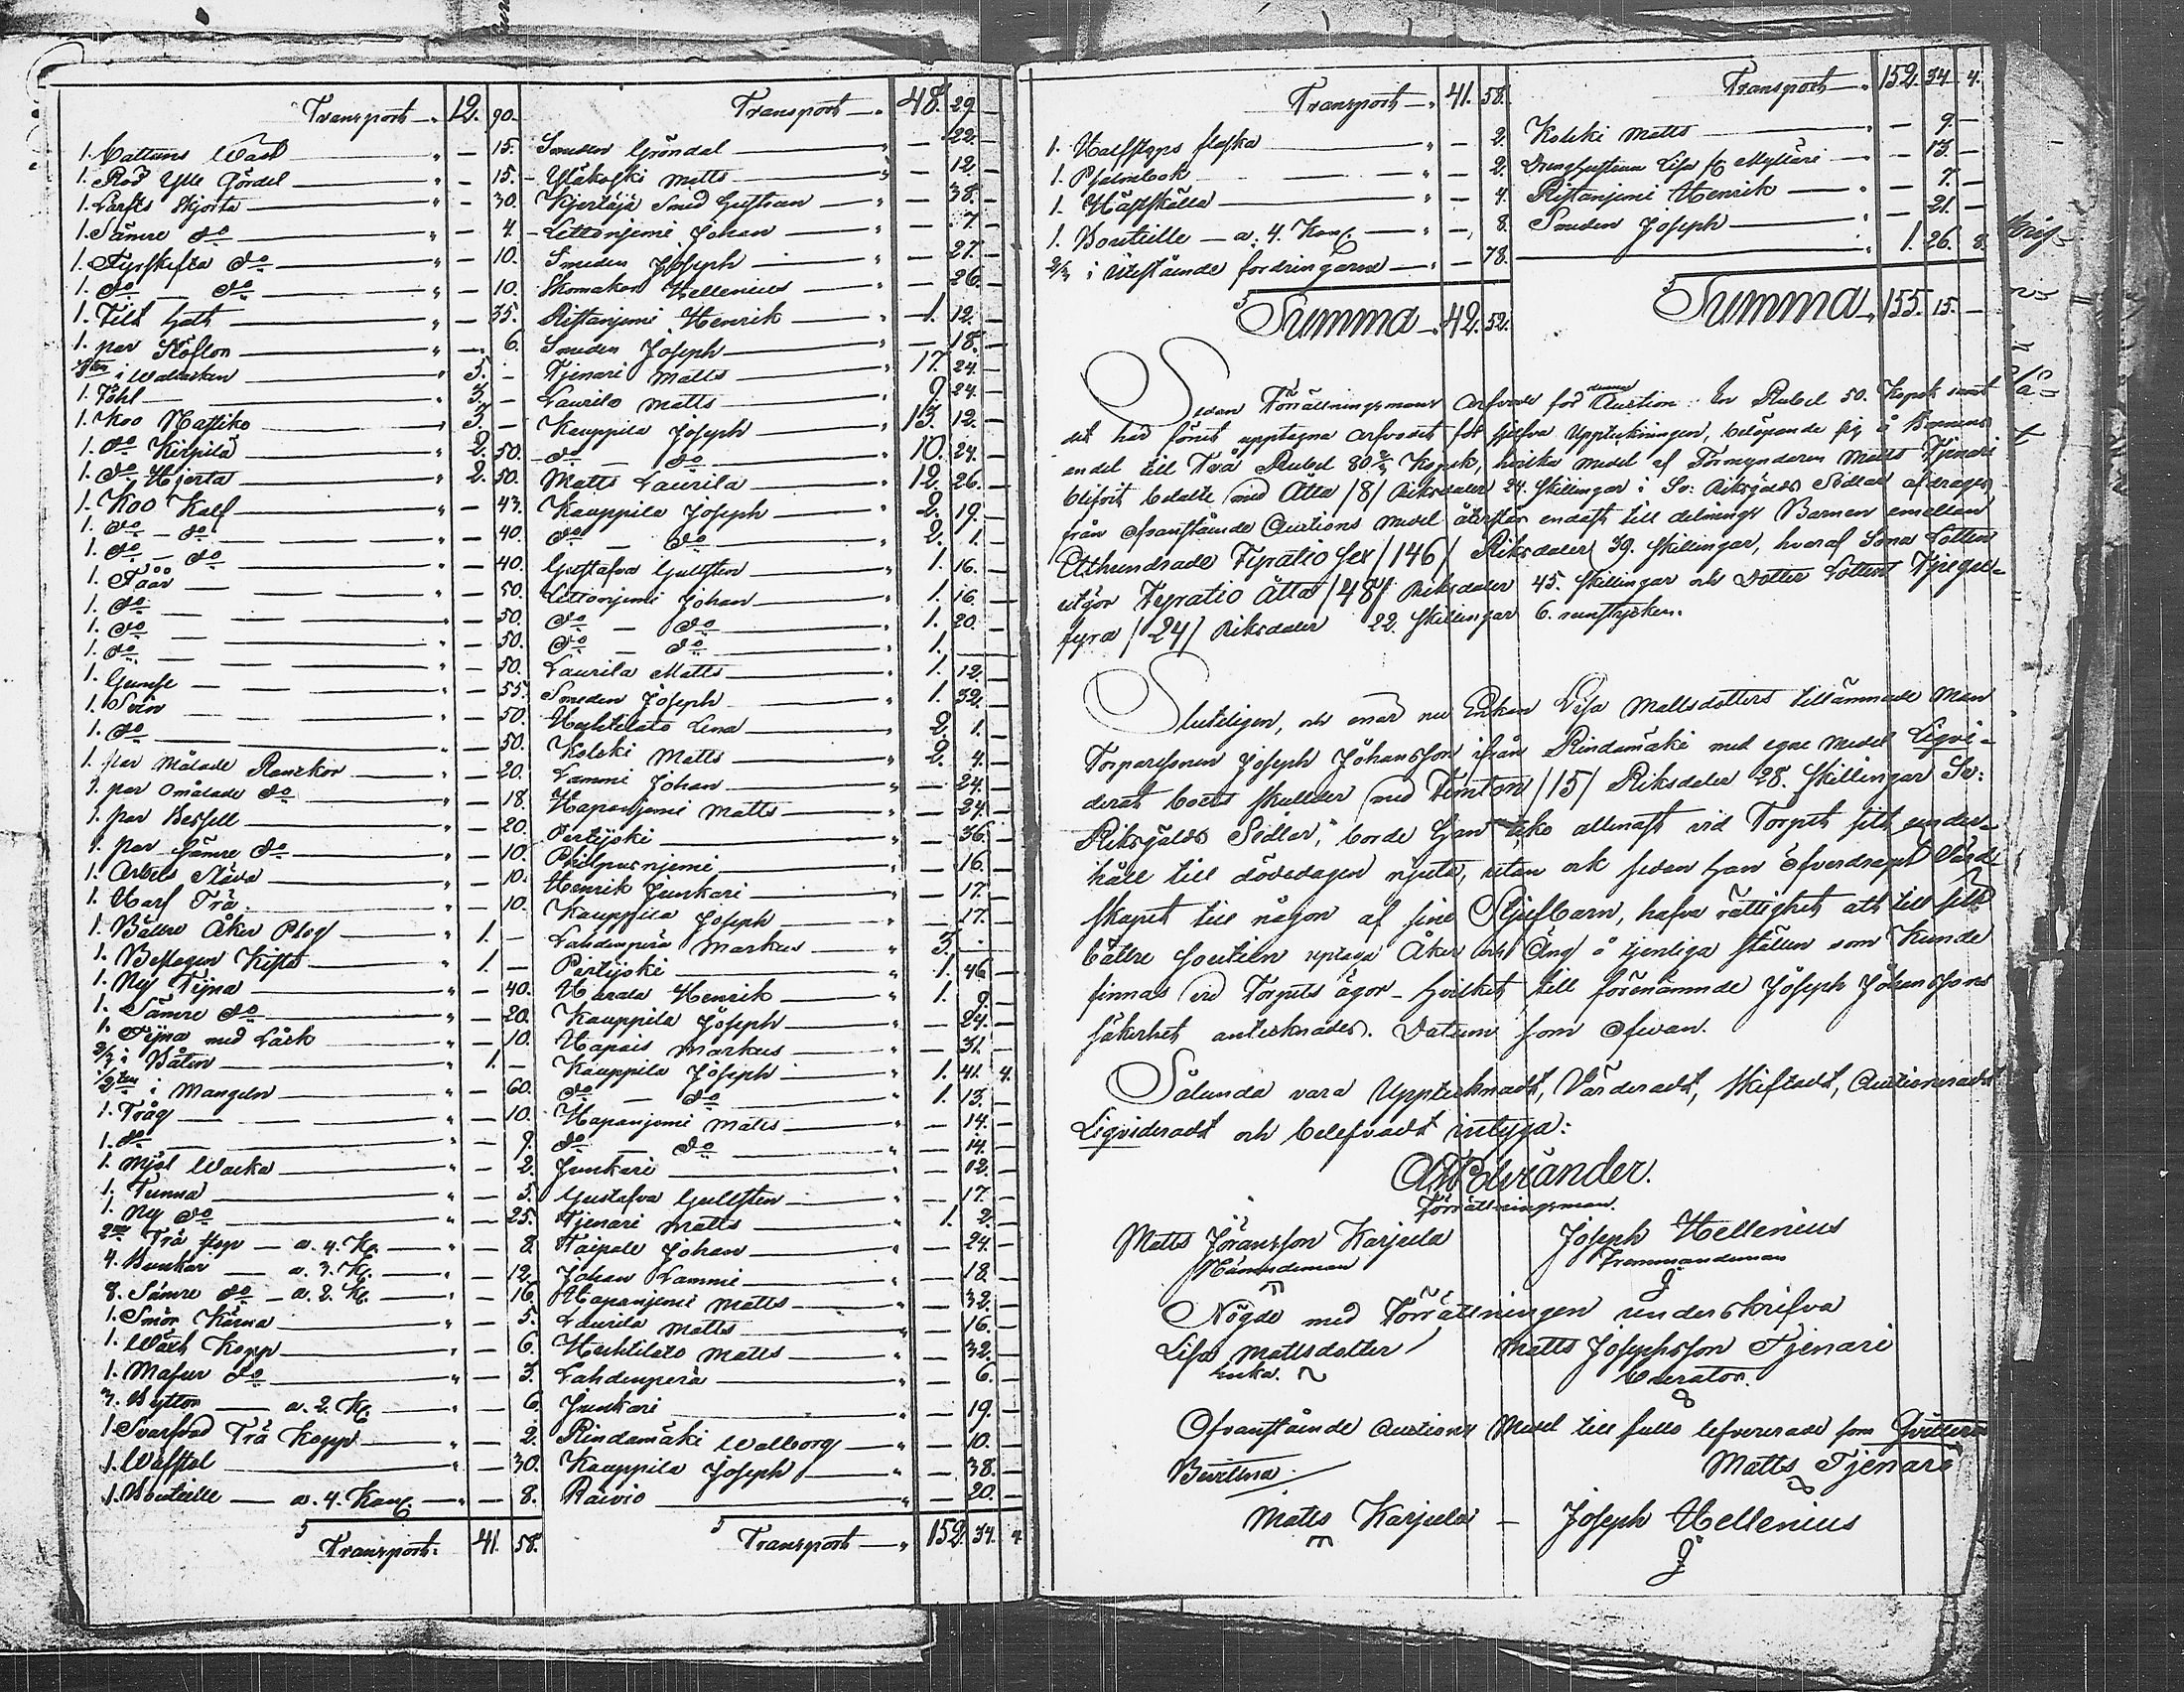 Transport — „ 12. 90. Transport — „ 48. 29. —
1. Cattuns Wäst — „ — 15. Smeden Gröndal — „ — 22. —
1. Röd Ylle Gördel — „ — 15. Yläkoski Matts — „ — 12. —
1. Lärfts Skjorta — „ — 30. Smed Gustava — „ — 38. —
1. Sämre do — „ — 4. Lettonjemi Johan — „ — 7. —
1. Fyrskefta do — „ — 10. Smeden Joseph — „ — 27. —
1. do — do — „ — 10. Skomakar Hellenius — „ — 26. —
1. Filt hatt — „ — 35. Ristanjemi Henrik — „ 1. 12. —
1. par Stöflor — „ — 6. Smeden Joseph — „ — 18. —
i Wallacken — „ 5. — Tjenari Matts — „ 17. 24. —
1. Fohl — „ 3. — Laurila Matts — „ 9. 24. —
1. Koo Mattiko — „ 3. — Kauppila Joseph — „ 13. 12. —
1. do Kirpilä — „ 2. 50. do — do — „ 10. 24. —
1. do Hjerta — „ 2. 50. Matts Laurila — „ 12. 26. —
1. Koo Kalf — „ — 43. Kauppila Joseph — „ 2. 19. —
1. do — do — „ — 40. do — do — „ 2. 1. —
1. do — do — „ — 40. Gustafva Gullsten — „ 1. 16. —
1. Fåår — „ — 50. Lettonjemi Johan — „ 1. 16. —
1. do — „ — 50. do — do — „ 1. 20. —
1. do — „ — 50. do — do — „ 1. — —
1. do — „ — 50. Laurila Matts — „ 1. 12. —
1. Gumse — „ — 55. Smeden Joseph — „ 1. 32. —
1. Svin — „ — 50. Huhtilato Lena — „ 2. 1. —
1. do — „ — 50. Kolcki Matts — „ 2. 4. —
1. par Målade Ranckor — „ — 20. Lammi Johan — „ — 24. —
1. par Omålade do — „ — 18. Hapanjemi Matts — „ — 24. —
1. par Bessell — „ — 20. Pärtijoki — „ — 36. —
1. par Sämre do — „ — 10. Philpusnjemi — „ — 16. —
1. Arbets Släda — „ — 10. Henrik Junkari — „ — 17. —
1. Harf Trä — „ — 10. Kauppila Joseph — „ — 17. —
1. Bättre Åker Plog — „ 1. — Lahdenperä Markus — „ 3. — —
1. Beslagen Kista — „ 1. — Pärtijoki — „ 1. 46. —
1. Ny Tijna — „ — 40. Harala Henrik — „ 1. 9. —
1. Sämre do — „ — 20. Kauppila Joseph — „ — 24. —
1. Tijna med Låck — „ — 10. Hapais Markus — „ — 31. —
2/3 i Båten — „ 1. — Kauppila Joseph — „ 1. 41. 4.
1/2 ten i Mangeln — „ — 60. do — do — „ 1. 13. —
1. Tråg — „ — 10. Hapanjemi Matts — „ — 14. —
1. do — „ — 9. do — do — „ — 14. —
1. Mjöl Wacka — „ — 2. Junkari — „ — 12. —
1. Tunna — „ — 5. Gustafva Gullsten — „ — 17. —
1. Ny do — „ — 25. Tjenari Matts — „ 1. 2. —
2ne Trä stop — a. 4. K. — „ — 8. Taipale Johan — „ — 24. —
4. Bunkar — a. 3. K. — „ — 12. Johan Lammi — „ — 18. —
8. Sämre do — a. 2. K. — „ — 16. Hapanjemi Matts — „ — 32. —
1. Smör Kärna — „ — 5. Laurila Matts — „ — 16. —
1. Wäck Kopp — „ — 6. Huhtilato Matts — „ — 32. —
1. Masur do — „ — 3. Lahdenperä — „ — 6. —
3. Byttor — a. 2. K. — „ — 6. Junkari — „ — 19. —
1. Svarfvad Trä Kopp — „ — 2. Rindamäki Walborg — „ — 10. —
1. Wäfstol — „ — 30. Kauppila Joseph — „ — 38. —
1. Bouteille — a. 4. Kan. — „ — 8. Raivio — „ — 20. —
Transport: 41. 58. Transport — „ 152. 34. 4.
Transport — „ 41. 58. Transport — „ 152. 34. 4.
1. Halfstops flaska — „ — 2. Kolcki Matts — „ — 9. —
1. Psalmbok — „ — 2. Lisa Myllari — „ — 13. —
1. — „ — 4. Ristanjemi Henrik — „ — 7. —
1. Bouteille — a. 4. Kan. — „ — 8. Smeden Joseph — „ — 21. —
2/3 i Utestående fordringarne — „ — 78. — „ 1. 26. 8.
Summa — „ 42. 52. Summa — „ 155. 15. —
Sedan Förrättningsmans Arfvode för denna Auction: En Rubel 50. Kopek samt
det här förut upptagna Arfvodet för sjelfva Uppteckningen, belöpande sig å Barnens
andel till Två Rubel 80 2/3 Kopek, hvilka medel af Förmyndaren Matts Tjenari
blifvit betalte med Åtta /8/ Riksdaler 24. Skillingar i Sv: Riksgälds Sedlar afdrages
från ofvanstående Auctions medel återstår endast till delnings Barnen emellan
Etthundrade Fyratio Sex /146/ Riksdaler 39. Skillingar, hvaraf Sona Lotten
utgör Fyratio Åtta /48/ Riksdaler 45. Skillingar och Dotter Lotten Tjuge-
fyra /24/ Riksdaler 22. Skillingar 6. runstycken.
Sluteligen, och enär nu Enkan Lisa Mattsdotters tillämnade Man
Torparesonen Joseph Johansson ifrån Rindamäki med egne medel Liqvi-
derat boets skullder med Femton /15/ Riksdaler 28. Skillingar Sv:
Riksgälds Sedlar, borde han icke allenast vid Torpet sitt under-
håll till dödsdagen njuta, utan ock sedan han öfverdragit Värd-
skapet till någon af sine Stjufbarn, hafva rättighet att till sitt
bättre soutien uptaga Åker och Äng å tjenliga ställen som Kunde
finnas vid Torpets ägor — hvilket till förenämnde Joseph Johanssons
säkerhet antecknades. Datum som Ofvan.
Sålunda vara Upptecknadt, Värderadt, Skiftadt, Auctioneradt
Liqvideradt och belefvadt intyga:
Förrättningsman.
Matts Jöransson Karjula Joseph Hellenius
Nämndeman
Nögde med Förrättningen underskrifva
Lisa Mattsdotter Matts Josephsson Tjenari
Enka. Curator.
Ofvanstående Auctions Medel till fullo lefvererade som Qvitteras
Matts Tjenari
Bevittna:
Matts Karjula — Joseph Hellenius